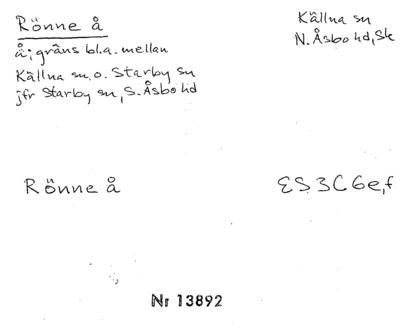 Rönne å
Källna sn
N. Åsbo hd, Sk
å; gräns bl.a. mellan
Källna sn. o. Starby sn
jfr Starby sn, S. Åsbo hd
Rönne å
ES3C6e,f
Nr 13892